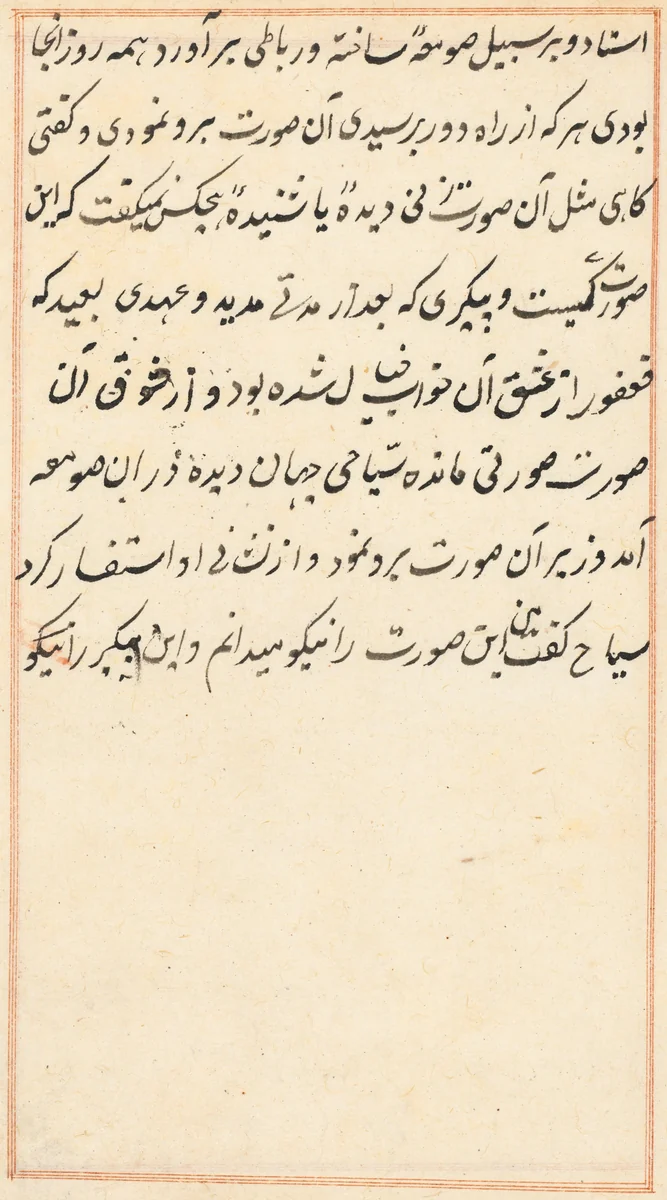 استاد و بر سبیل صومعهٔ ساخته و رباطی برآورد همه روز آنجا
بودی هر که از راه دور برسیدی آن صورت برو نمودی و کفتی
کاهی مثل آن صورتی دیدهٔ یا شنیدهٔ هیچکس نمیکفت که این
صورت کیست و پیکری که بعد از مدتے مدید و عهدی بعید که
فغفور از عشق آن خواب خیال شده بود و از شوق آن
صورت صورتی مانده سیّاحی جهان دیده در ان صومعه
آمد وزیر آن صورت برو نمود و از نشانی او استفسار کرد
سیاح کفت من این صورت را نیکو میدانم و این پیکر را نیکو